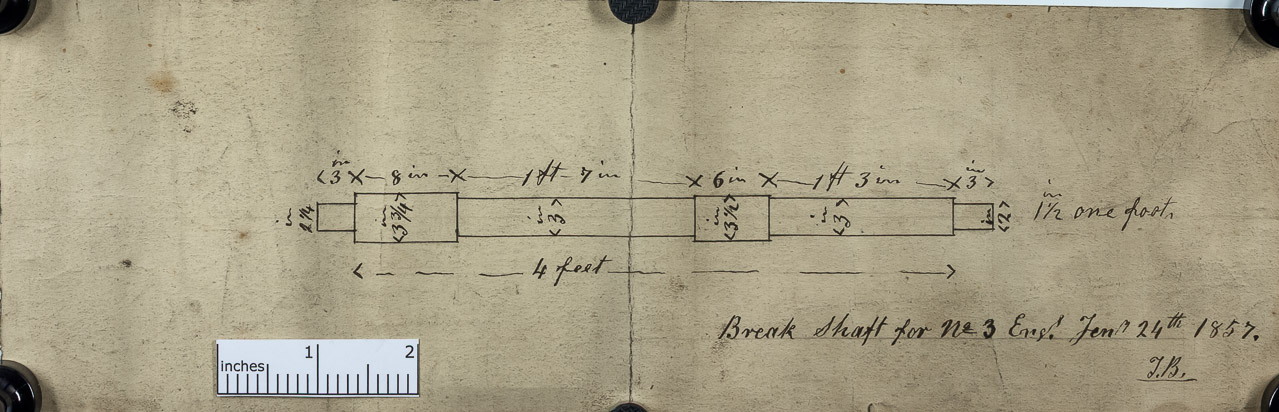 in in
<3 × 8 in × 1 ft 7 in × 6 in × 1 ft 3 in × 3>
in 2 1/4 in <3 3/4> in <3> in <3 1/2> in <3> in <2>
in
1 1/2 one foot.
< 4 feet >
Break Shaft for No 3 Engs. Jenry 24th 1857.
J.B.
1 2
inches